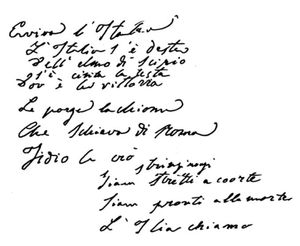 Evviva l'Italia
L'Italia s'è desta
Dell'elmo di Scipio
S'è cinta la testa
Dov'è la vittoria
Le porga la chioma
Che schiava di Roma
Iddio la creò
Stringiamoci
Siam stretti a coorte
Siam pronti alla morte
L'Italia chiamò